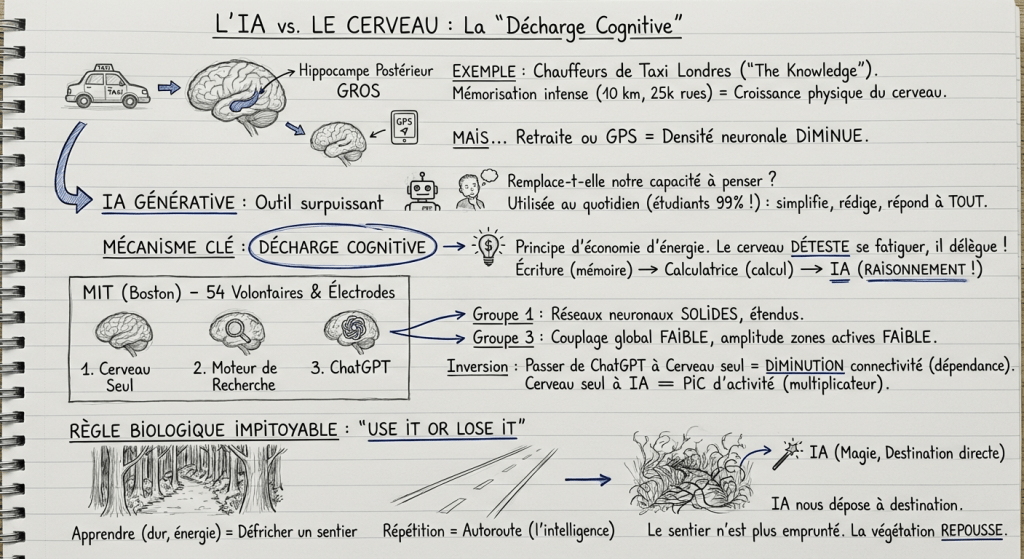 L'IA vs. LE CERVEAU : La "Décharge Cognitive"
TAXI
TAXI
Hippocampe Postérieur
GROS
GPS
EXEMPLE : Chauffeurs de Taxi Londres ("The Knowledge").
Mémorisation intense (10 km, 25k rues) = Croissance physique du cerveau.
MAIS... Retraite ou GPS = Densité neuronale DIMINUE.
IA GÉNÉRATIVE : Outil surpuissant
Remplace-t-elle notre capacité à penser ?
Utilisée au quotidien (étudiants 99% !) : simplifie, rédige, répond à TOUT.
MÉCANISME CLÉ : DÉCHARGE COGNITIVE
$
Principe d'économie d'énergie. Le cerveau DÉTESTE se fatiguer, il délègue !
Écriture (mémoire) → Calculatrice (calcul) → IA (RAISONNEMENT !)
MIT (Boston) – 54 Volontaires & Électrodes
1. Cerveau
Seul
2. Moteur de
Recherche
3. ChatGPT
Groupe 1 : Réseaux neuronaux SOLIDES, étendus.
Groupe 3 : Couplage global FAIBLE, amplitude zones actives FAIBLE.
Inversion : Passer de ChatGPT à Cerveau seul = DIMINUTION connectivité (dépendance).
Cerveau seul à IA = PIC d'activité (multiplicateur).
RÈGLE BIOLOGIQUE IMPITOYABLE : "USE IT OR LOSE IT"
Apprendre (dur, énergie) = Défricher un sentier
Répétition = Autoroute (l'intelligence)
IA (Magie, Destination directe)
IA nous dépose à destination.
Le sentier n'est plus emprunté. La végétation REPOUSSE.